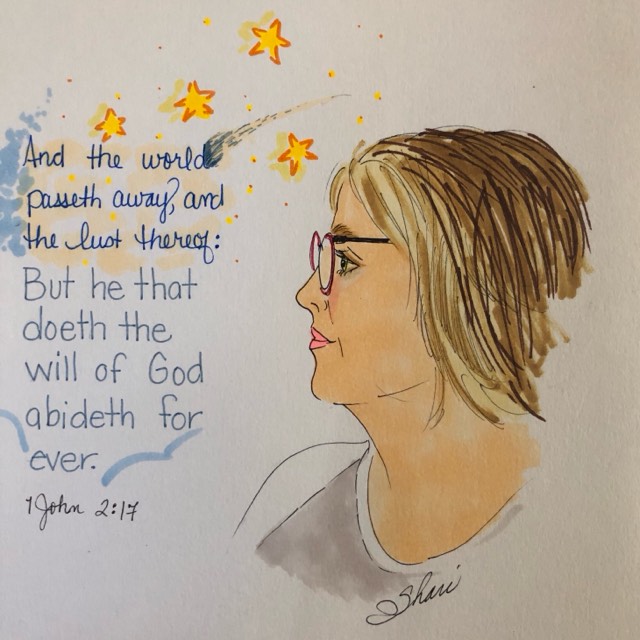 And the world
passeth away, and
the lust thereof:
But he that
doeth the
will of God
abideth for
ever.
1 John 2:17
Shari